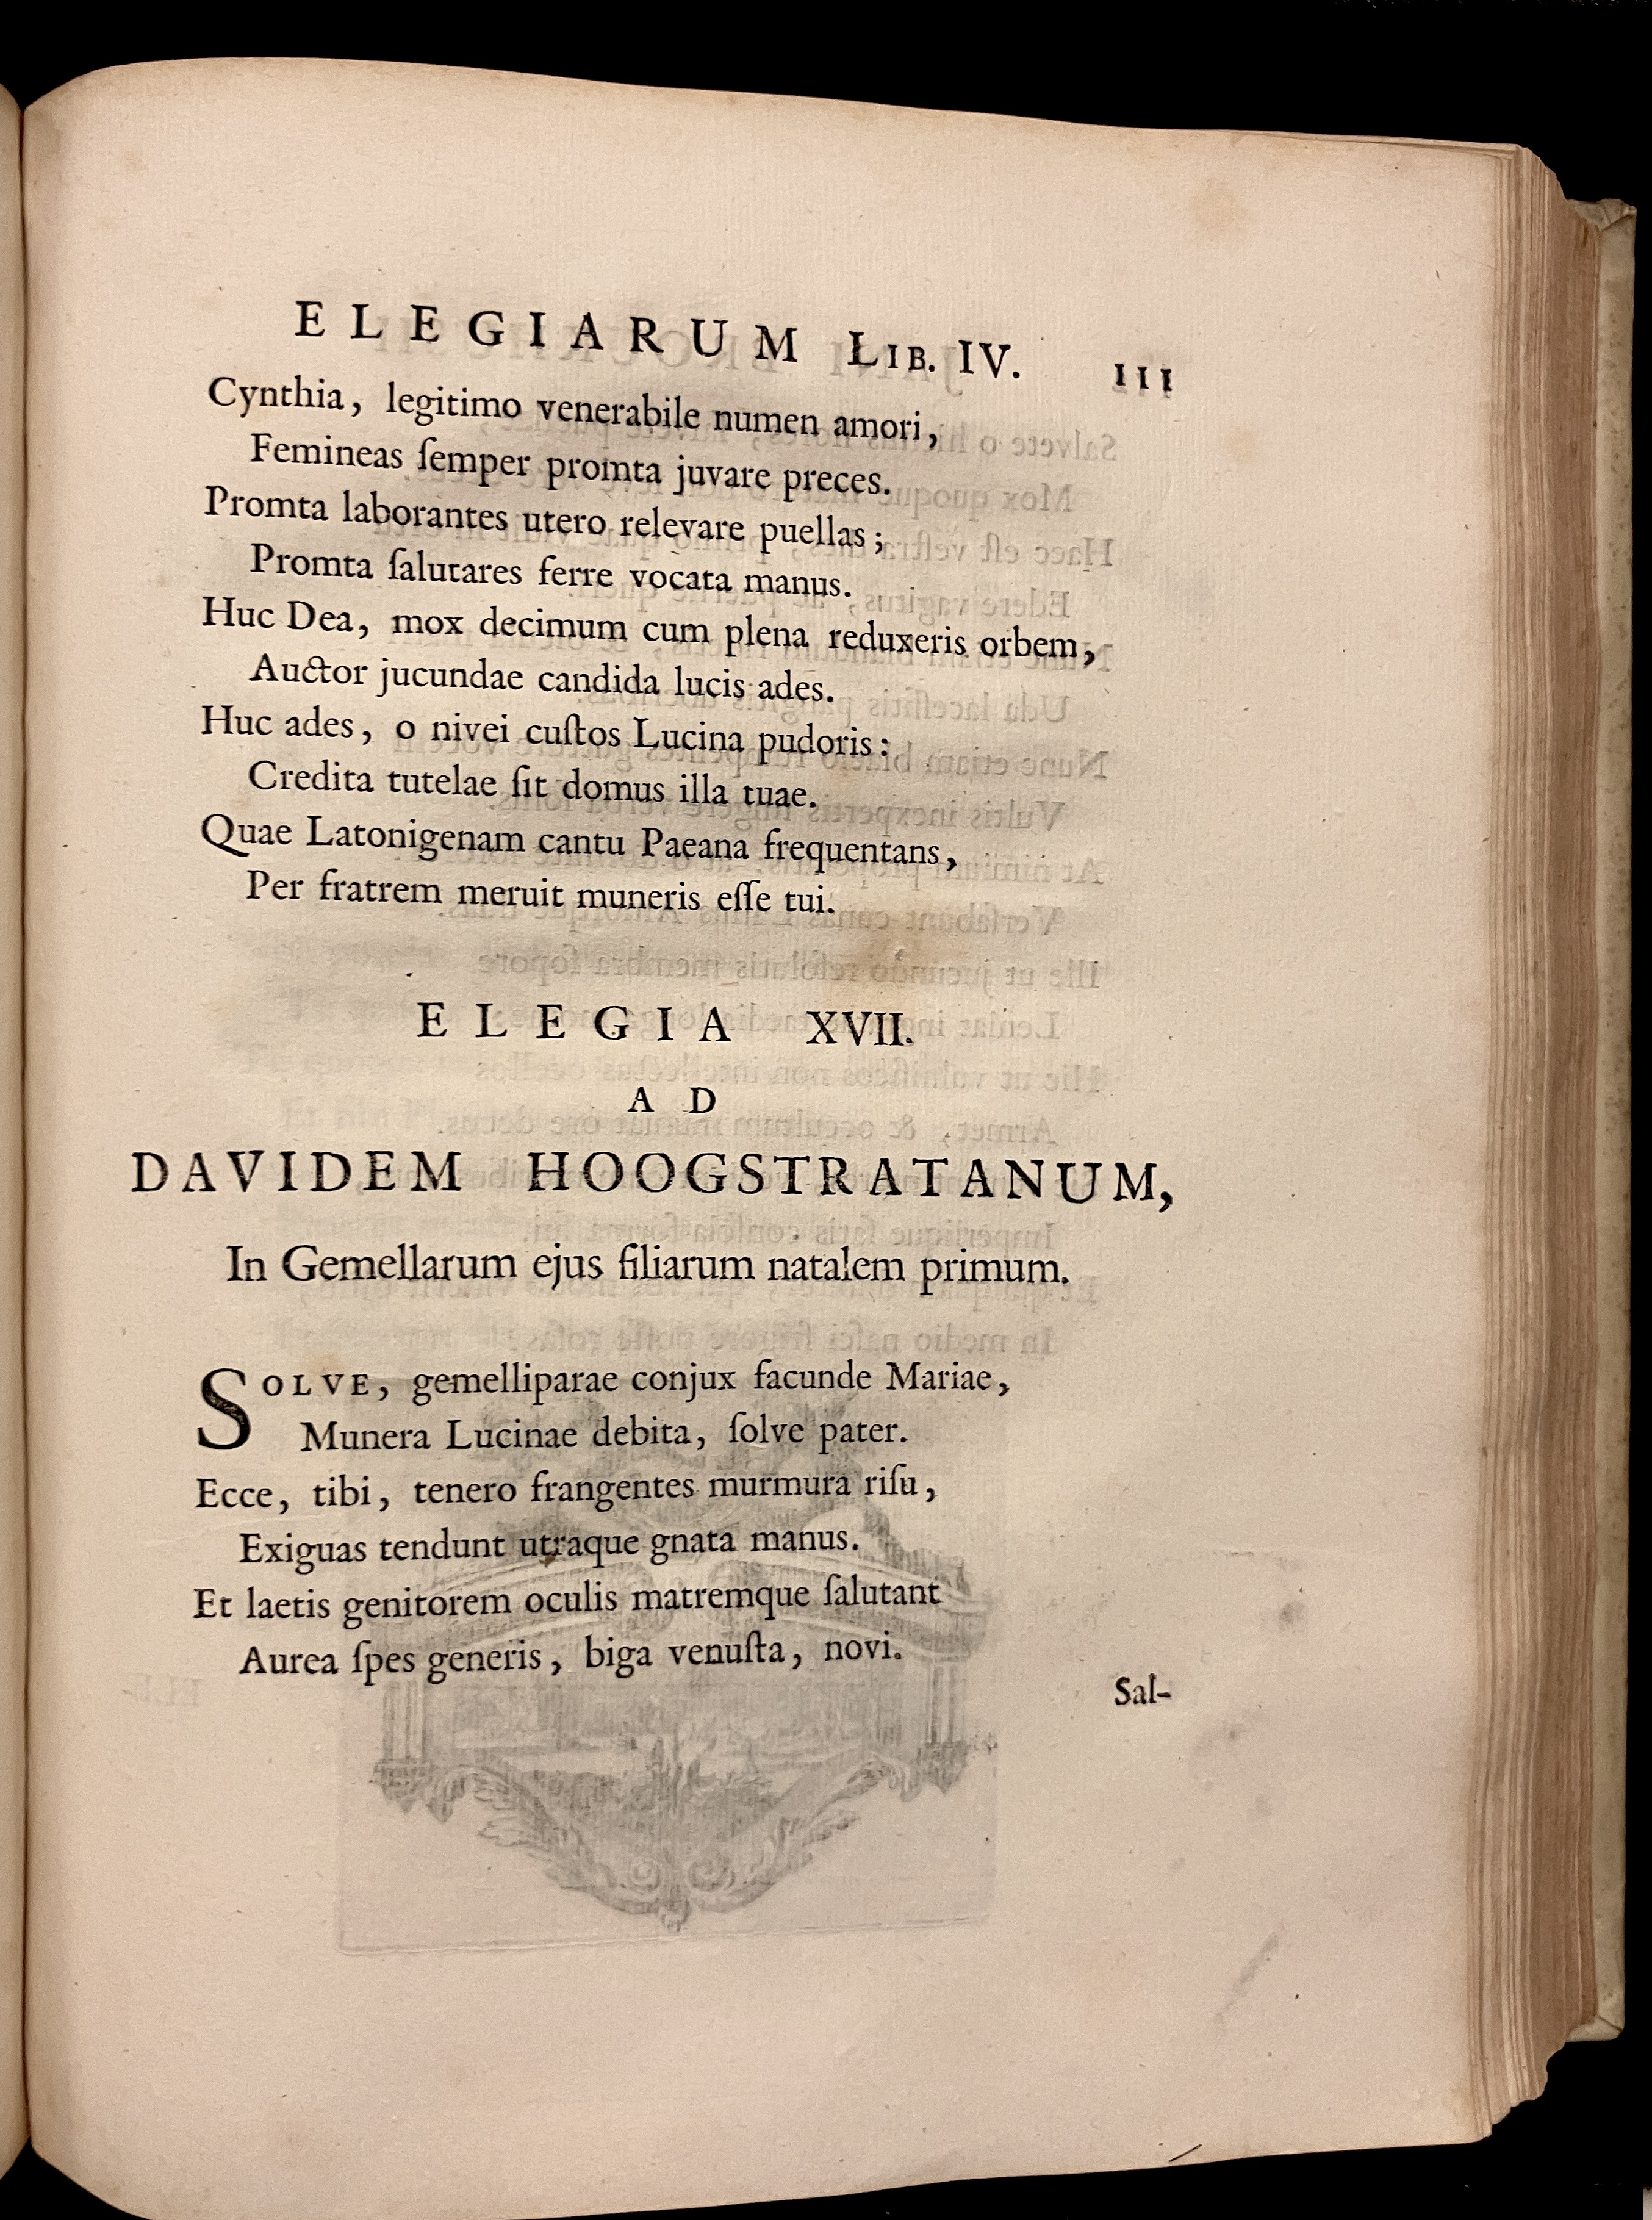 ELEGIARUM LIB. IV. 111
Cynthia, legitimo venerabile numen amori,
Femineas ſemper promta juvare preces.
Promta laborantes utero relevare puellas;
Promta ſalutares ferre vocata manus.
Huc Dea, mox decimum cum plena reduxeris orbem,
Auctor jucundae candida lucis ades.
Huc ades, o nivei cuſtos Lucina pudoris:
Credita tutelae ſit domus illa tuae.
Quae Latonigenam cantu Paeana frequentans,
Per fratrem meruit muneris eſſe tui.
ELEGIA XVII.
AD
DAVIDEM HOOGSTRATANUM,
In Gemellarum ejus filiarum natalem primum.
SOLVE, gemelliparae conjux facunde Mariae,
Munera Lucinae debita, ſolve pater.
Ecce, tibi, tenero frangentes murmura riſu,
Exiguas tendunt utraque gnata manus.
Et laetis genitorem oculis matremque ſalutant
Aurea ſpes generis, biga venuſta, novi.
Sal-